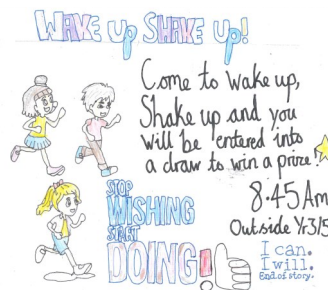 WAKE up SHAKE up!
Come to wake up,
Shake up and you
will be entered into
a draw to win a prize!
8.45 Am
Outside Yr3/5
STOP
WISHING
START
DOING!
I can.
I will.
End of story.